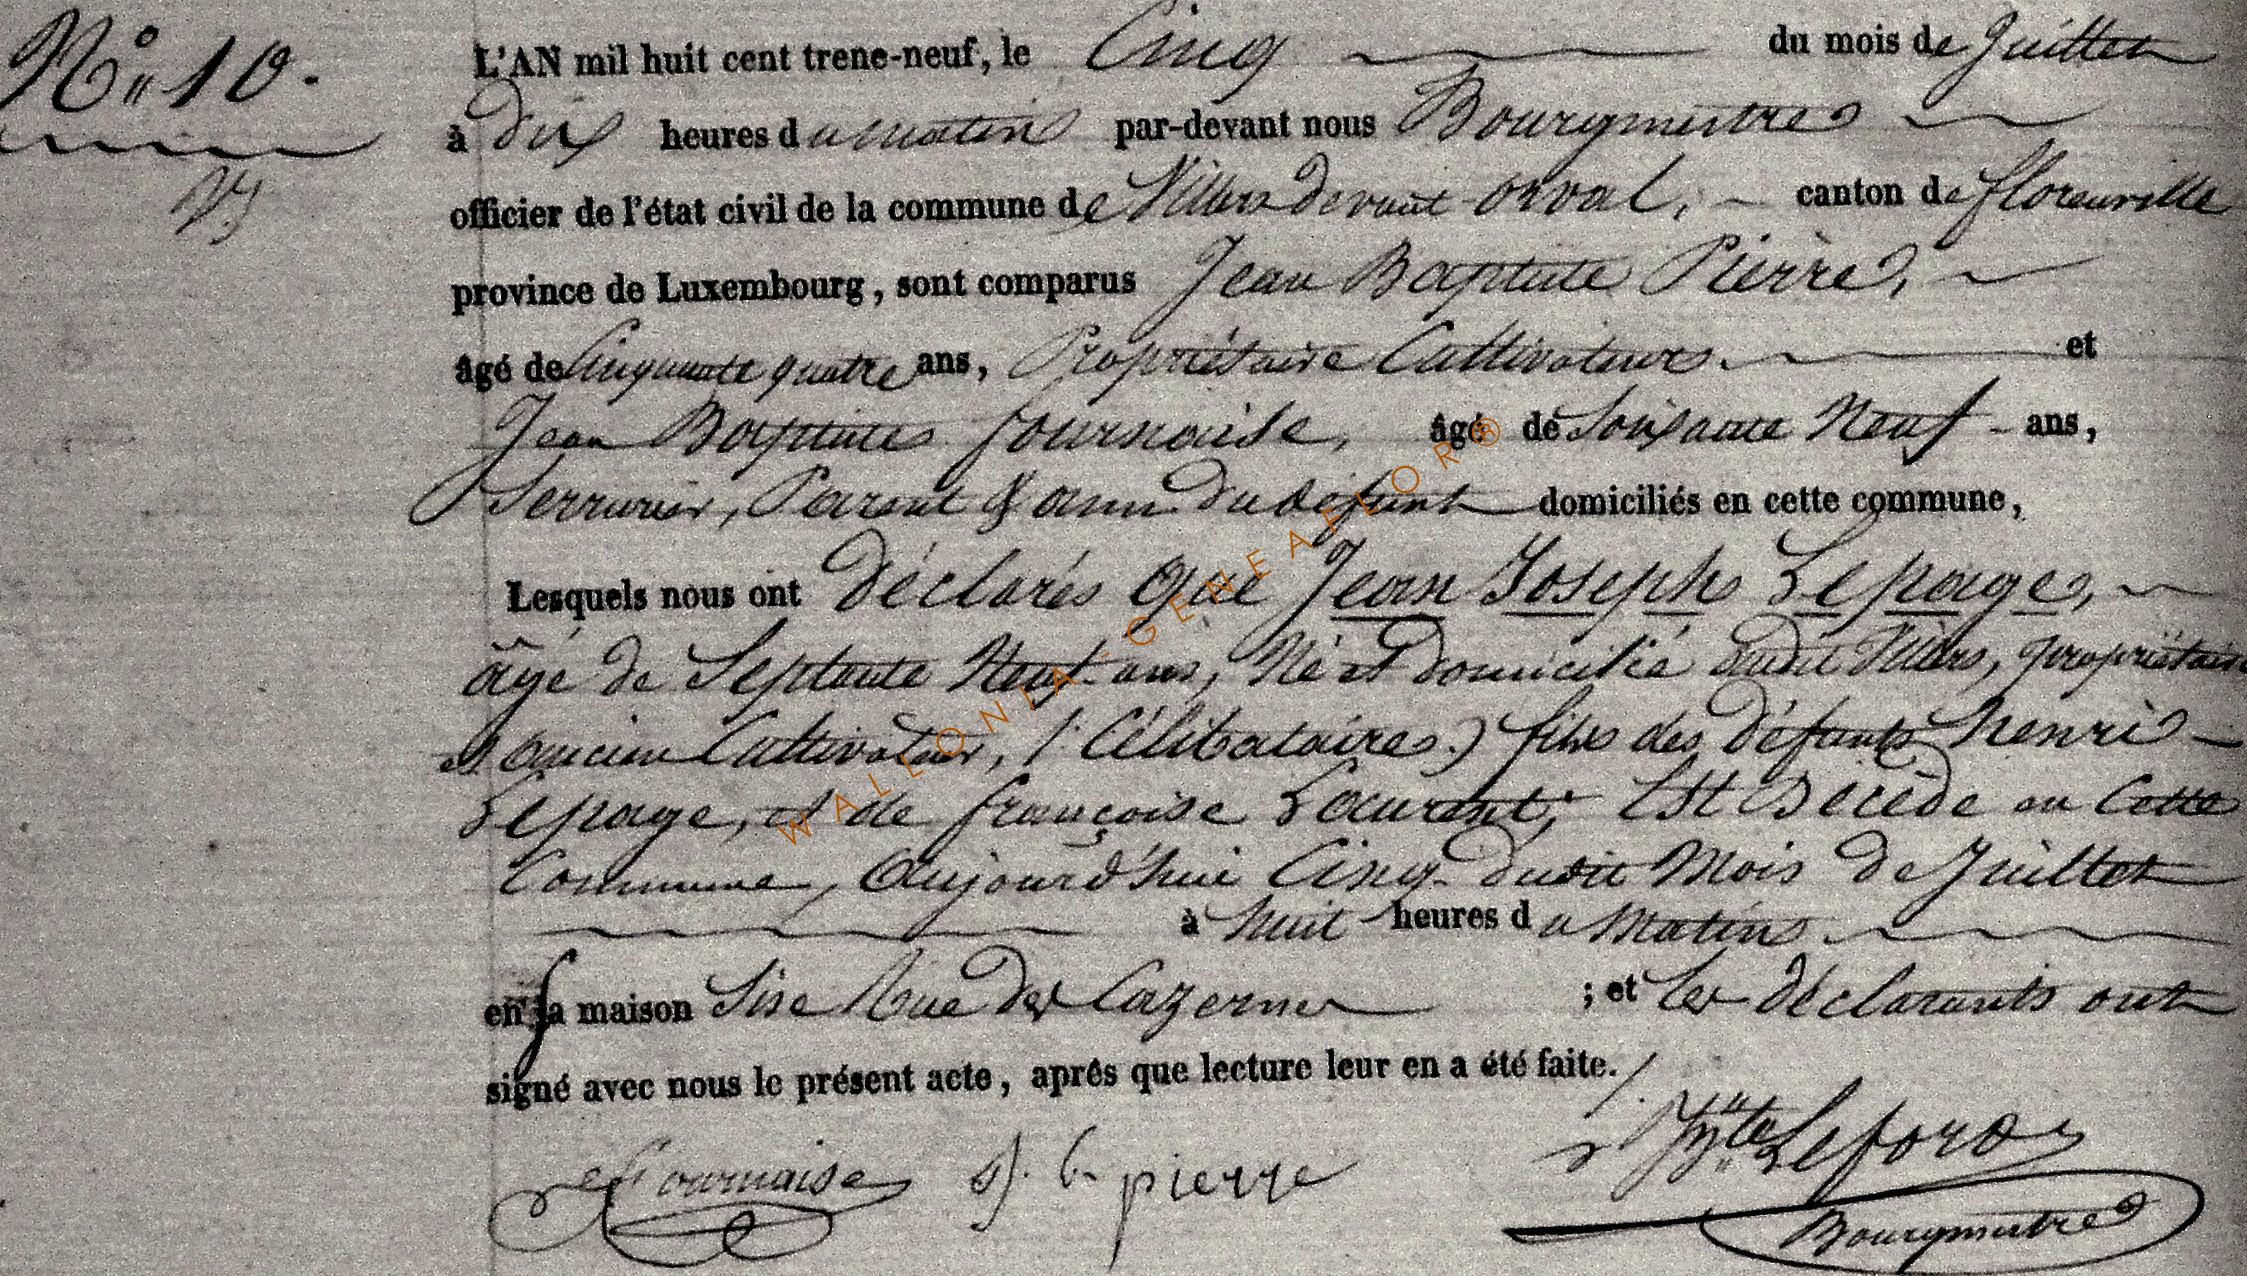 N° 10.
L'AN mil huit cent trene-neuf, le Cinq du mois de Juillet
à dix heures du matin par-devant nous Bourgmestre
officier de l'état civil de la commune de Villers devant orval, canton de florenville
province de Luxembourg, sont comparus Jean Baptiste Pièrre,
âgé de Cinquante quatre ans, Propriétaire Cultivateur et
Jean Baptiste fournaise, âgé de Soixante Neuf ans,
Serrurier, Parent & ami du défunt domiciliés en cette commune,
Lesquels nous ont déclarés que Jean Joseph Lepage,
âgé de Septante Neuf ans, Né et domicilié dudit Villers, propriétaire
et ancien Cultivateur, (Célibataire) fils des défunts henri
Lepage, et de françoise Laurent, Est Décédé en cette
Commune, Aujourd'hui Cinq dudit Mois de Juillet
à huit heures du Matin
en sa maison Sise Rue des Cazernes ; et les déclarants ont
signé avec nous le présent acte, après que lecture leur en a été faite.
fournaise j. b. pierre Hyte Leford
Bourgmestre
WALLONIA-GENEAFLOR®